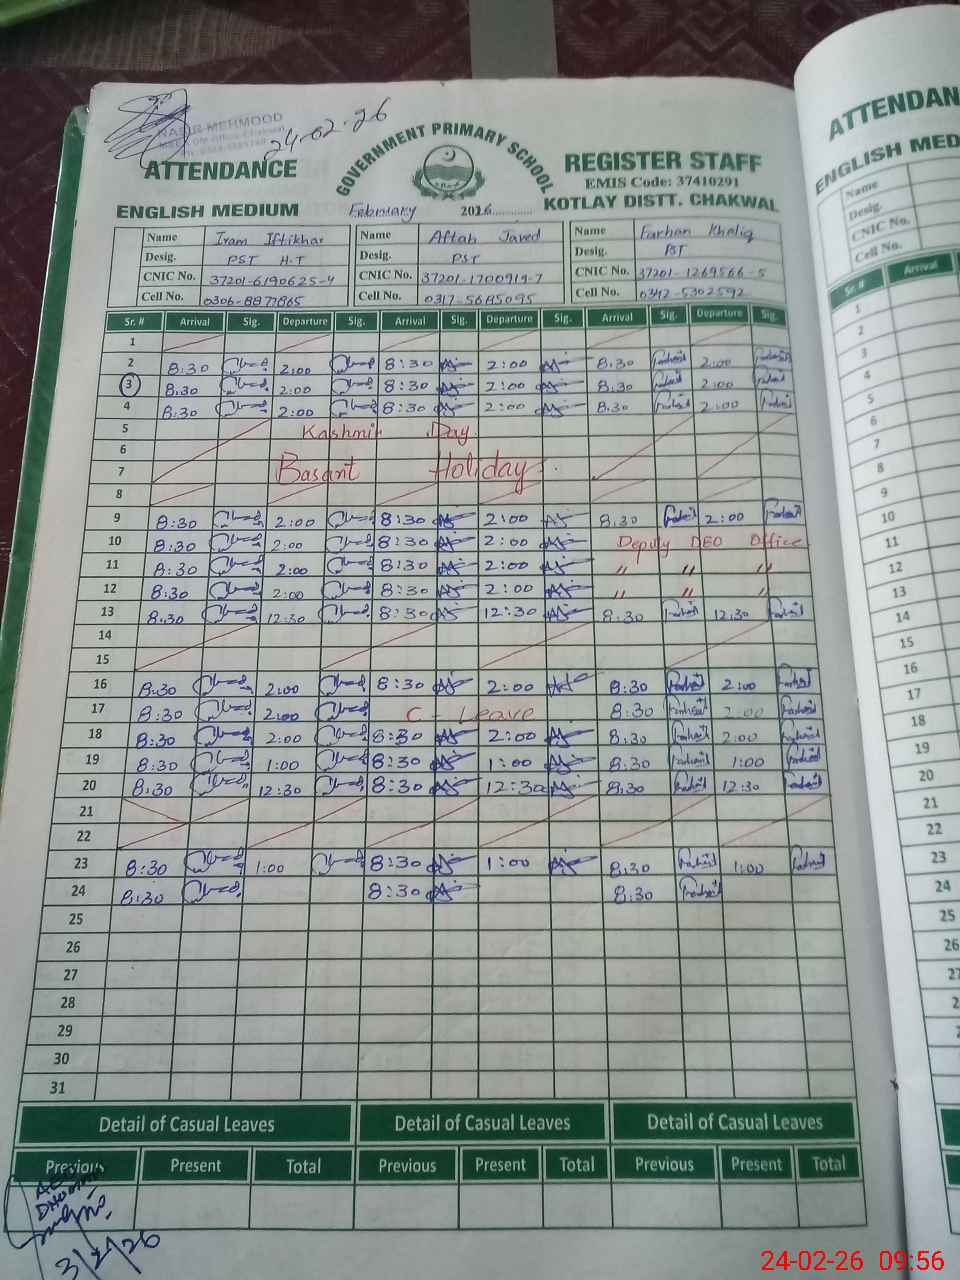 NASIR MEHMOOD
24-02-26
ATTENDANCE
GOVERNMENT PRIMARY SCHOOL
REGISTER STAFF
EMIS Code: 37410291
ENGLISH MEDIUM February 2026............ KOTLAY DISTT. CHAKWAL
Name Iram Iftikhar Name Aftab Javed Name Farhan Khaliq
Desig. PST H.T Desig. PST Desig. PST
CNIC No. 37201-6190625-4 CNIC No. 37201-1700919-7 CNIC No. 37201-1269566-5
Cell No. 0306-8877865 Cell No. 0317-5685095 Cell No. 0342-5302592
Sr. # Arrival Sig. Departure Sig. Arrival Sig. Departure Sig. Arrival Sig. Departure Sig.
1
2 8:30 2:00 8:30 2:00 8:30 2:00
3 8:30 2:00 8:30 2:00 8:30 2:00
4 8:30 2:00 8:30 2:00 8:30 2:00
5 Kashmir Day
6
7 Basant Holidays.
8
9 8:30 2:00 8:30 2:00 8:30 2:00
10 8:30 2:00 8:30 2:00 Deputy DEO Office
11 8:30 2:00 8:30 2:00 〃 〃 〃
12 8:30 2:00 8:30 2:00 〃 〃 〃
13 8:30 12:30 8:30 12:30 8:30 12:30
14
15
16 8:30 2:00 8:30 2:00 8:30 2:00
17 8:30 2:00 C - Leave 8:30 2:00
18 8:30 2:00 8:30 2:00 8:30 2:00
19 8:30 1:00 8:30 1:00 8:30 1:00
20 8:30 12:30 8:30 12:30 8:30 12:30
21
22
23 8:30 1:00 8:30 1:00 8:30 1:00
24 8:30 8:30 8:30
25
26
27
28
29
30
31
Detail of Casual Leaves Detail of Casual Leaves Detail of Casual Leaves
Previous Present Total Previous Present Total Previous Present Total
3/2/26
ATTENDAN
ENGLISH MED
Name
Desig.
CNIC No.
Cell No.
Sr. # Arrival
1
2
3
4
5
6
7
8
9
10
11
12
13
14
15
16
17
18
19
20
21
22
23
24
25
26
27
24-02-26 09:56